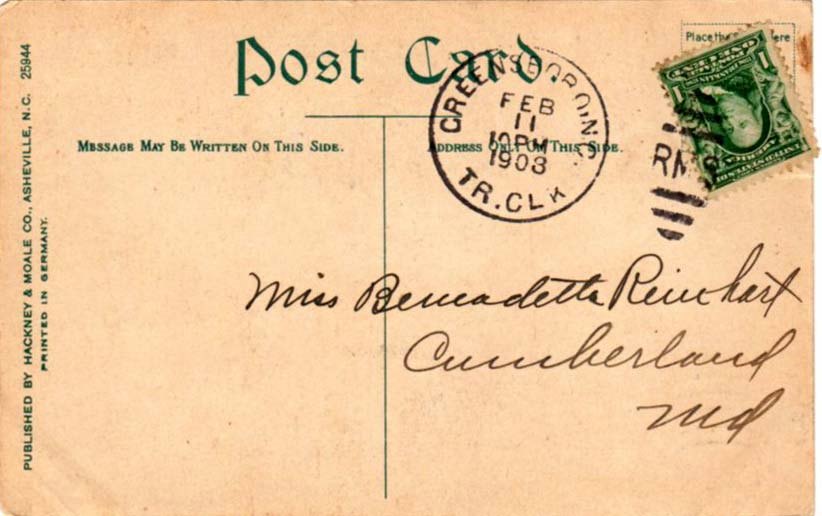 Post Card.
Place the Here
MESSAGE MAY BE WRITTEN ON THIS SIDE.
ADDRESS ONLY ON THIS SIDE.
GREENSBORO, N.C.
FEB
11
10 PM
1908
TR. CLK
RMS
Miss Bernadetta Reinhart
Cumberland
Md
PUBLISHED BY HACKNEY & MOALE CO., ASHEVILLE, N.C. 25944
PRINTED IN GERMANY.
1
1